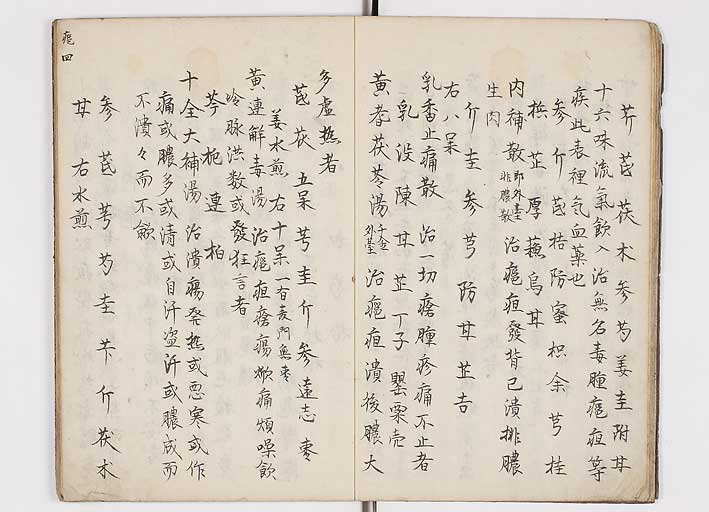 芥芪茯朮参芍姜圭附甘
十六味流氣飲入治無名毒腫癰疽等
疾此表裡氣血薬也
参介芪桔防蜜枳余芎桂
梹芷厚蘓烏甘
内補散即外臺排膿散治癰疽發背已潰排膿
生肉
介圭参芎防甘芷吉
右八呆
乳香止痛散治一切瘡腫疼痛不止者
乳没陳甘芷丁子罌粟壳
黄耆茯苓湯千金外臺治癰疽潰後膿大
多虚熱者
芪茯五呆芎圭介参遠志棗
姜水煎右十呆一有麦門無棗
黄連解毒湯治癰疽瘡瘍焮痛煩噪飲
冷脉洪数或發狂言者
芩梔連柏
十全大補湯治潰瘍発熱或悪寒或作
痛或膿多或清或自汗盗汗或膿成而
不潰々而不斂
参芪芎芍圭芐介茯朮
甘右水煎
癰四